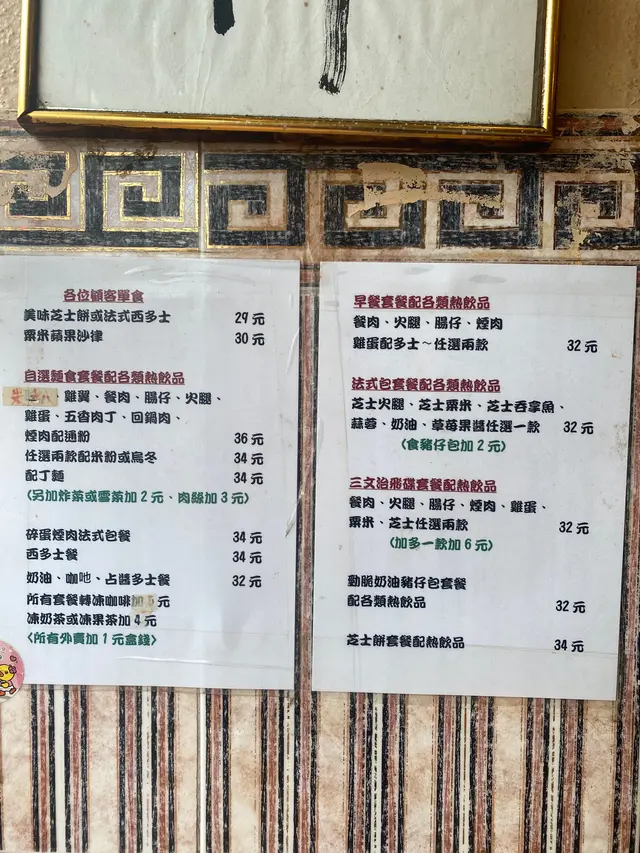 各位顧客單食
美味芝士餅或法式西多士 29 元
粟米蘋果沙律 30 元
自選麵食套餐配各類熱飲品
、雞翼、餐肉、腸仔、火腿、
雞蛋、五香肉丁、回鍋肉、
煙肉配通粉 36 元
任選兩款配米粉或烏冬 34 元
配丁麵 34 元
(另加炸菜或雪菜加 2 元、肉絲加 3 元)
碎蛋煙肉法式包餐 34 元
西多士餐 34 元
奶油、咖吔、占醬多士餐 32 元
所有套餐轉凍咖啡加 5 元
凍奶茶或凍果茶加 4 元
<所有外賣加 1 元盒錢>
早餐套餐配各類熱飲品
餐肉、火腿、腸仔、煙肉
雞蛋配多士~任選兩款 32 元
法式包套餐配各類熱飲品
芝士火腿、芝士粟米、芝士吞拿魚、
蒜蓉、奶油、草莓果醬任選一款 32 元
(食豬仔包加 2 元)
三文治飛碟套餐配熱飲品
餐肉、火腿、腸仔、煙肉、雞蛋、
粟米、芝士任選兩款 32 元
(加多一款加 6 元)
勁脆奶油豬仔包套餐
配各類熱飲品 32 元
芝士餅套餐配熱飲品 34 元